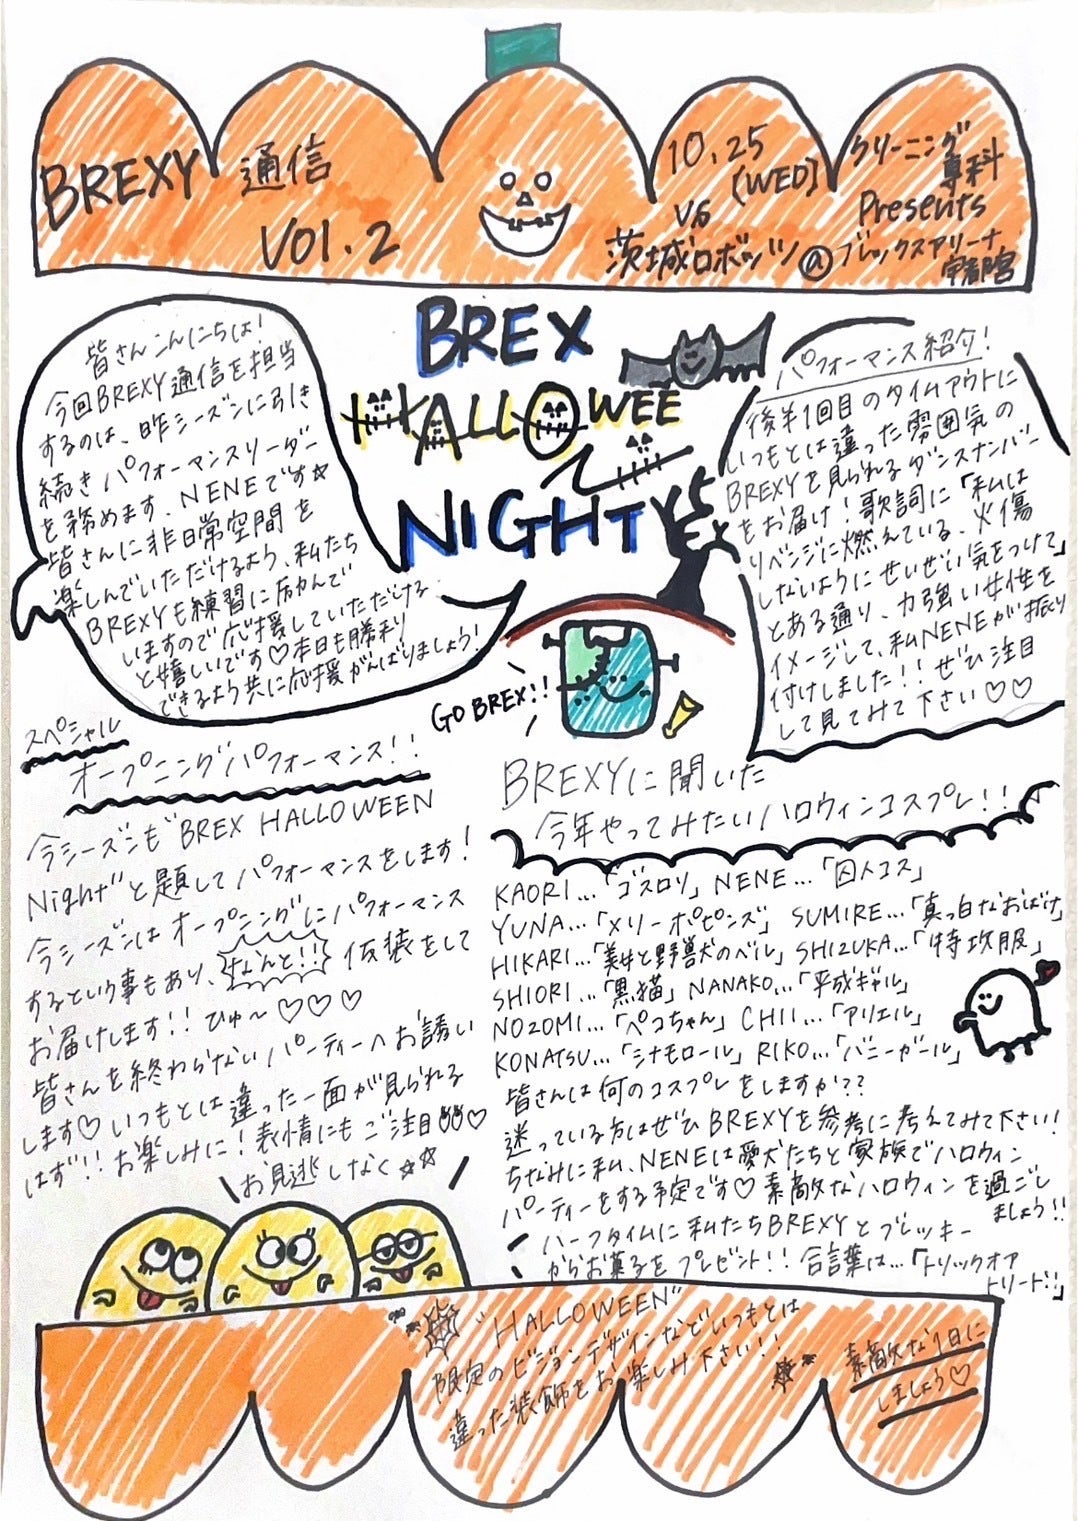 BREXY 通信
VOl.2
10.25
(WED)
VS
茨城ロボッツ@ブレックスアリーナ
宇都宮
クリーニング
専科
Presents
BREX
HALLOWEEN
NIGHT
皆さんこんにちは!
今回BREXY通信を担当
するのは、昨シーズンに引き
続きパフォーマンスリーダー
を務めます、NENEです☆
皆さんに非日常空間を
楽しんでいただけるよう、私たち
BREXYも練習に励んで
いますので応援していただける
と嬉しいです♡本日も勝利
できるよう共に応援がんばりましょう!
パフォーマンス紹介!
後半1回目のタイムアウトに
いつもとは違った雰囲気の
BREXYを見られるダンスナンバー
をお届け!歌詞に「私は
リベンジに燃えている、火傷
しないようにせいぜい気をつけて」
とある通り、力強い女性を
イメージして、私NENEが振り
付けしました!!ぜひ注目
して見てみて下さい♡♡
GO BREX!!
スペシャル
オープニングパフォーマンス!!
今シーズンも"BREX HALLOWEEN
Night"と題してパフォーマンスをします!
今シーズンはオープニングにパフォーマンス
するという事もあり、なんと!!仮装をして
お届けします!!ひゅ〜♡♡♡
皆さんを終わらないパーティーへお誘い
します♡いつもとは違った一面が見られる
はず!!お楽しみに!表情にもご注目♡
お見逃しなく☆☆
BREXYに聞いた
今年やってみたいハロウィンコスプレ!!
KAORI...「ゴスロリ」NENE...「囚人コス」
YUNA...「メリーポピンズ」SUMIRE...「真っ白なおばけ」
HIKARI...「美女と野獣のベル」SHIZUKA...「特攻服」
SHIORI...「黒猫」NANAKO...「平成ギャル」
NOZOMI...「ペコちゃん」CHII...「アリエル」
KONATSU...「シナモロール」RIKO...「バニーガール」
皆さんは何のコスプレをしますか??
迷っている方はぜひBREXYを参考に考えてみて下さい!
ちなみに私、NENEは愛犬たちと家族でハロウィン
パーティーをする予定です♡素敵なハロウィンを過ごし
ましょう!!
ハーフタイムに私たちBREXYとブレッキー
からお菓子をプレゼント!!合言葉は...「トリックオア
トリート!!」
"HALLOWEEN"
限定のビジョンデザインなどいつもとは
違った装飾をお楽しみ下さい!!
素敵な1日に
しましょう♡